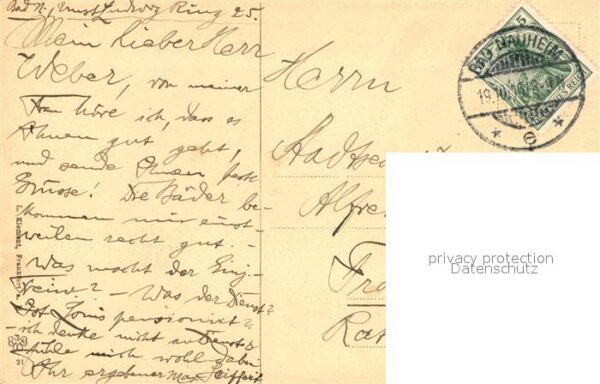 Bad N., Ernst Ludwig Ring 25.
Mein lieber Herr
Weber, von meiner
Frau höre ich, dass es
Ihnen gut geht,
und sende Ihnen beste
Grüsse! Die Bäder be-
kommen mir einst-
weilen recht gut. –
Was macht der Einj.
– Was der Dienst?
Ist pensioniert?
– ich denke nicht an Dienst &
fühle mich wohl dabei
Ihr ergebener Max Seiffert
L. Klement, Frankfurt a.
21
Herrn
Alfre
Fra
Rat
BAD-NAUHEIM
5
privacy protection
Datenschutz